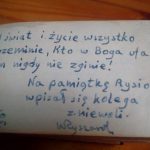 świat i życie wszystko
przeminie, Kto w Boga ufa
nigdy nie zginie!
Na pamiątkę Rysio
wpisał się kolega
z niewoli.
Ryszard